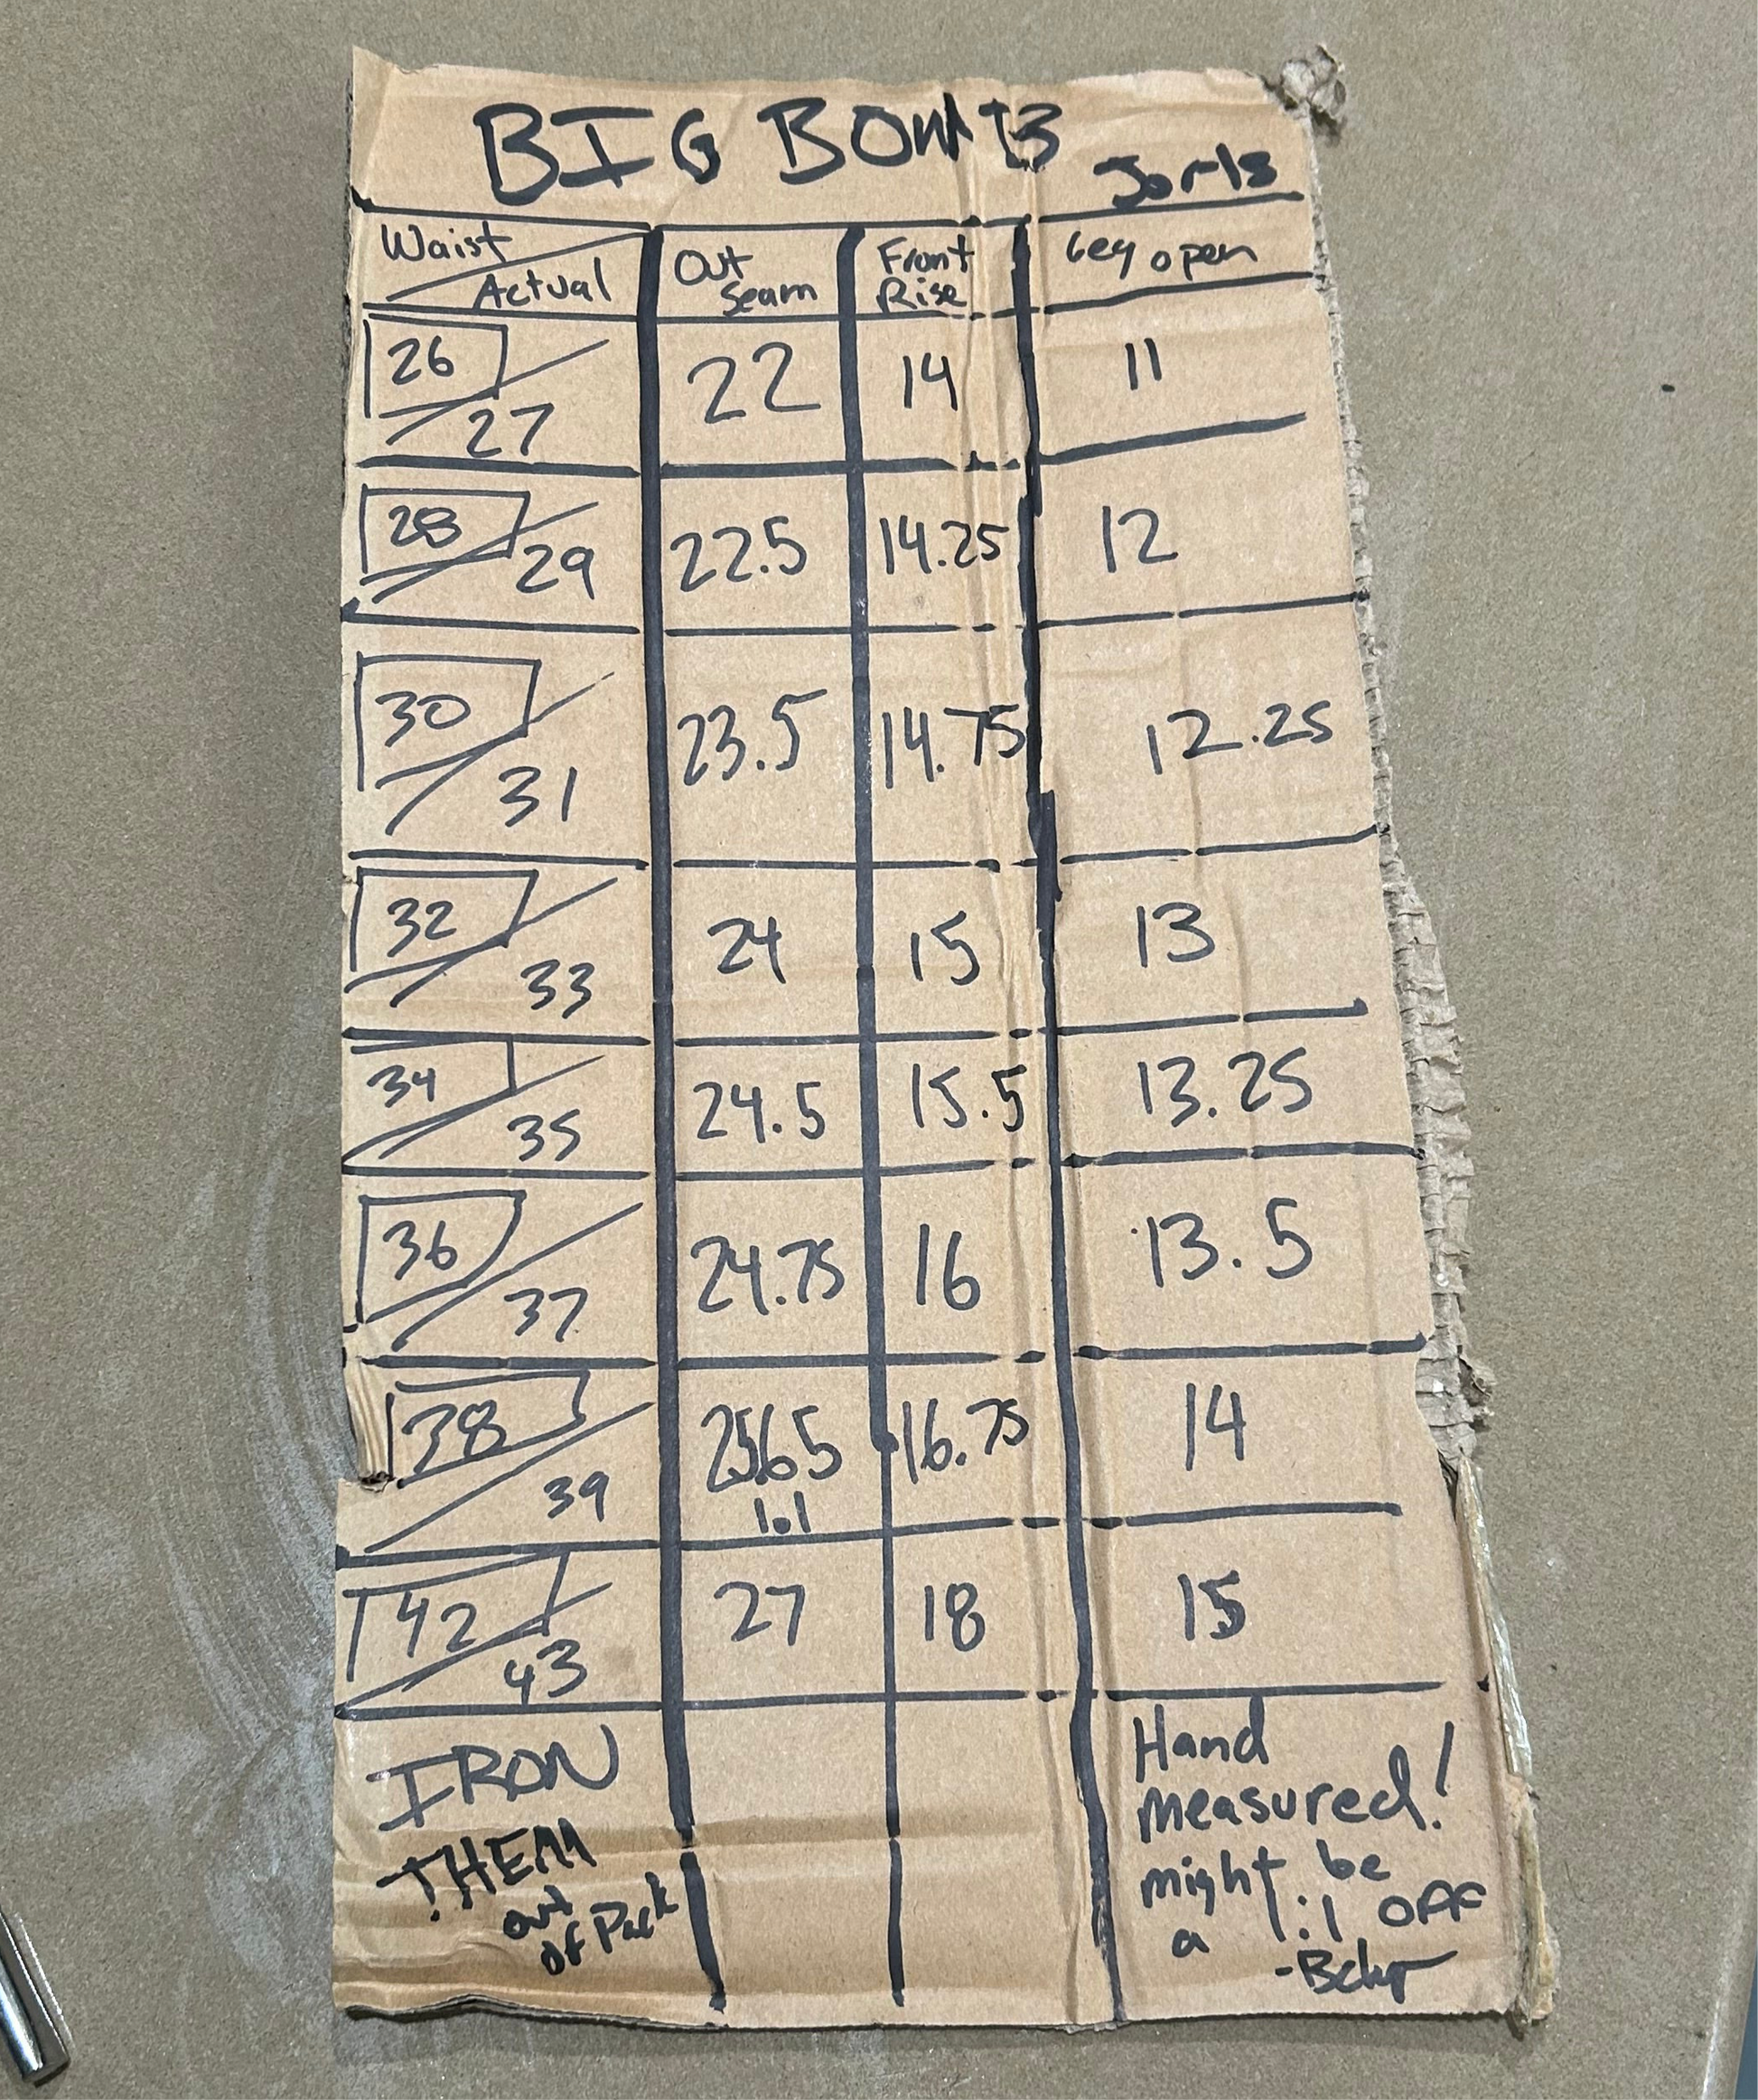 BIG BOWl t3
Jorts
Waist Actual Out Seam Front Rise Leg open
26 27 22 14 11
28 29 22.5 14.25 12
30 31 23.5 14.75 12.25
32 33 24 15 13
34 35 24.5 15.5 13.25
36 37 24.75 16 13.5
38 39 25.65 lol 16.75 14
42 43 27 18 15
IRON
THEM
out
of Pack
Hand
measured!
might be
a lil OFF